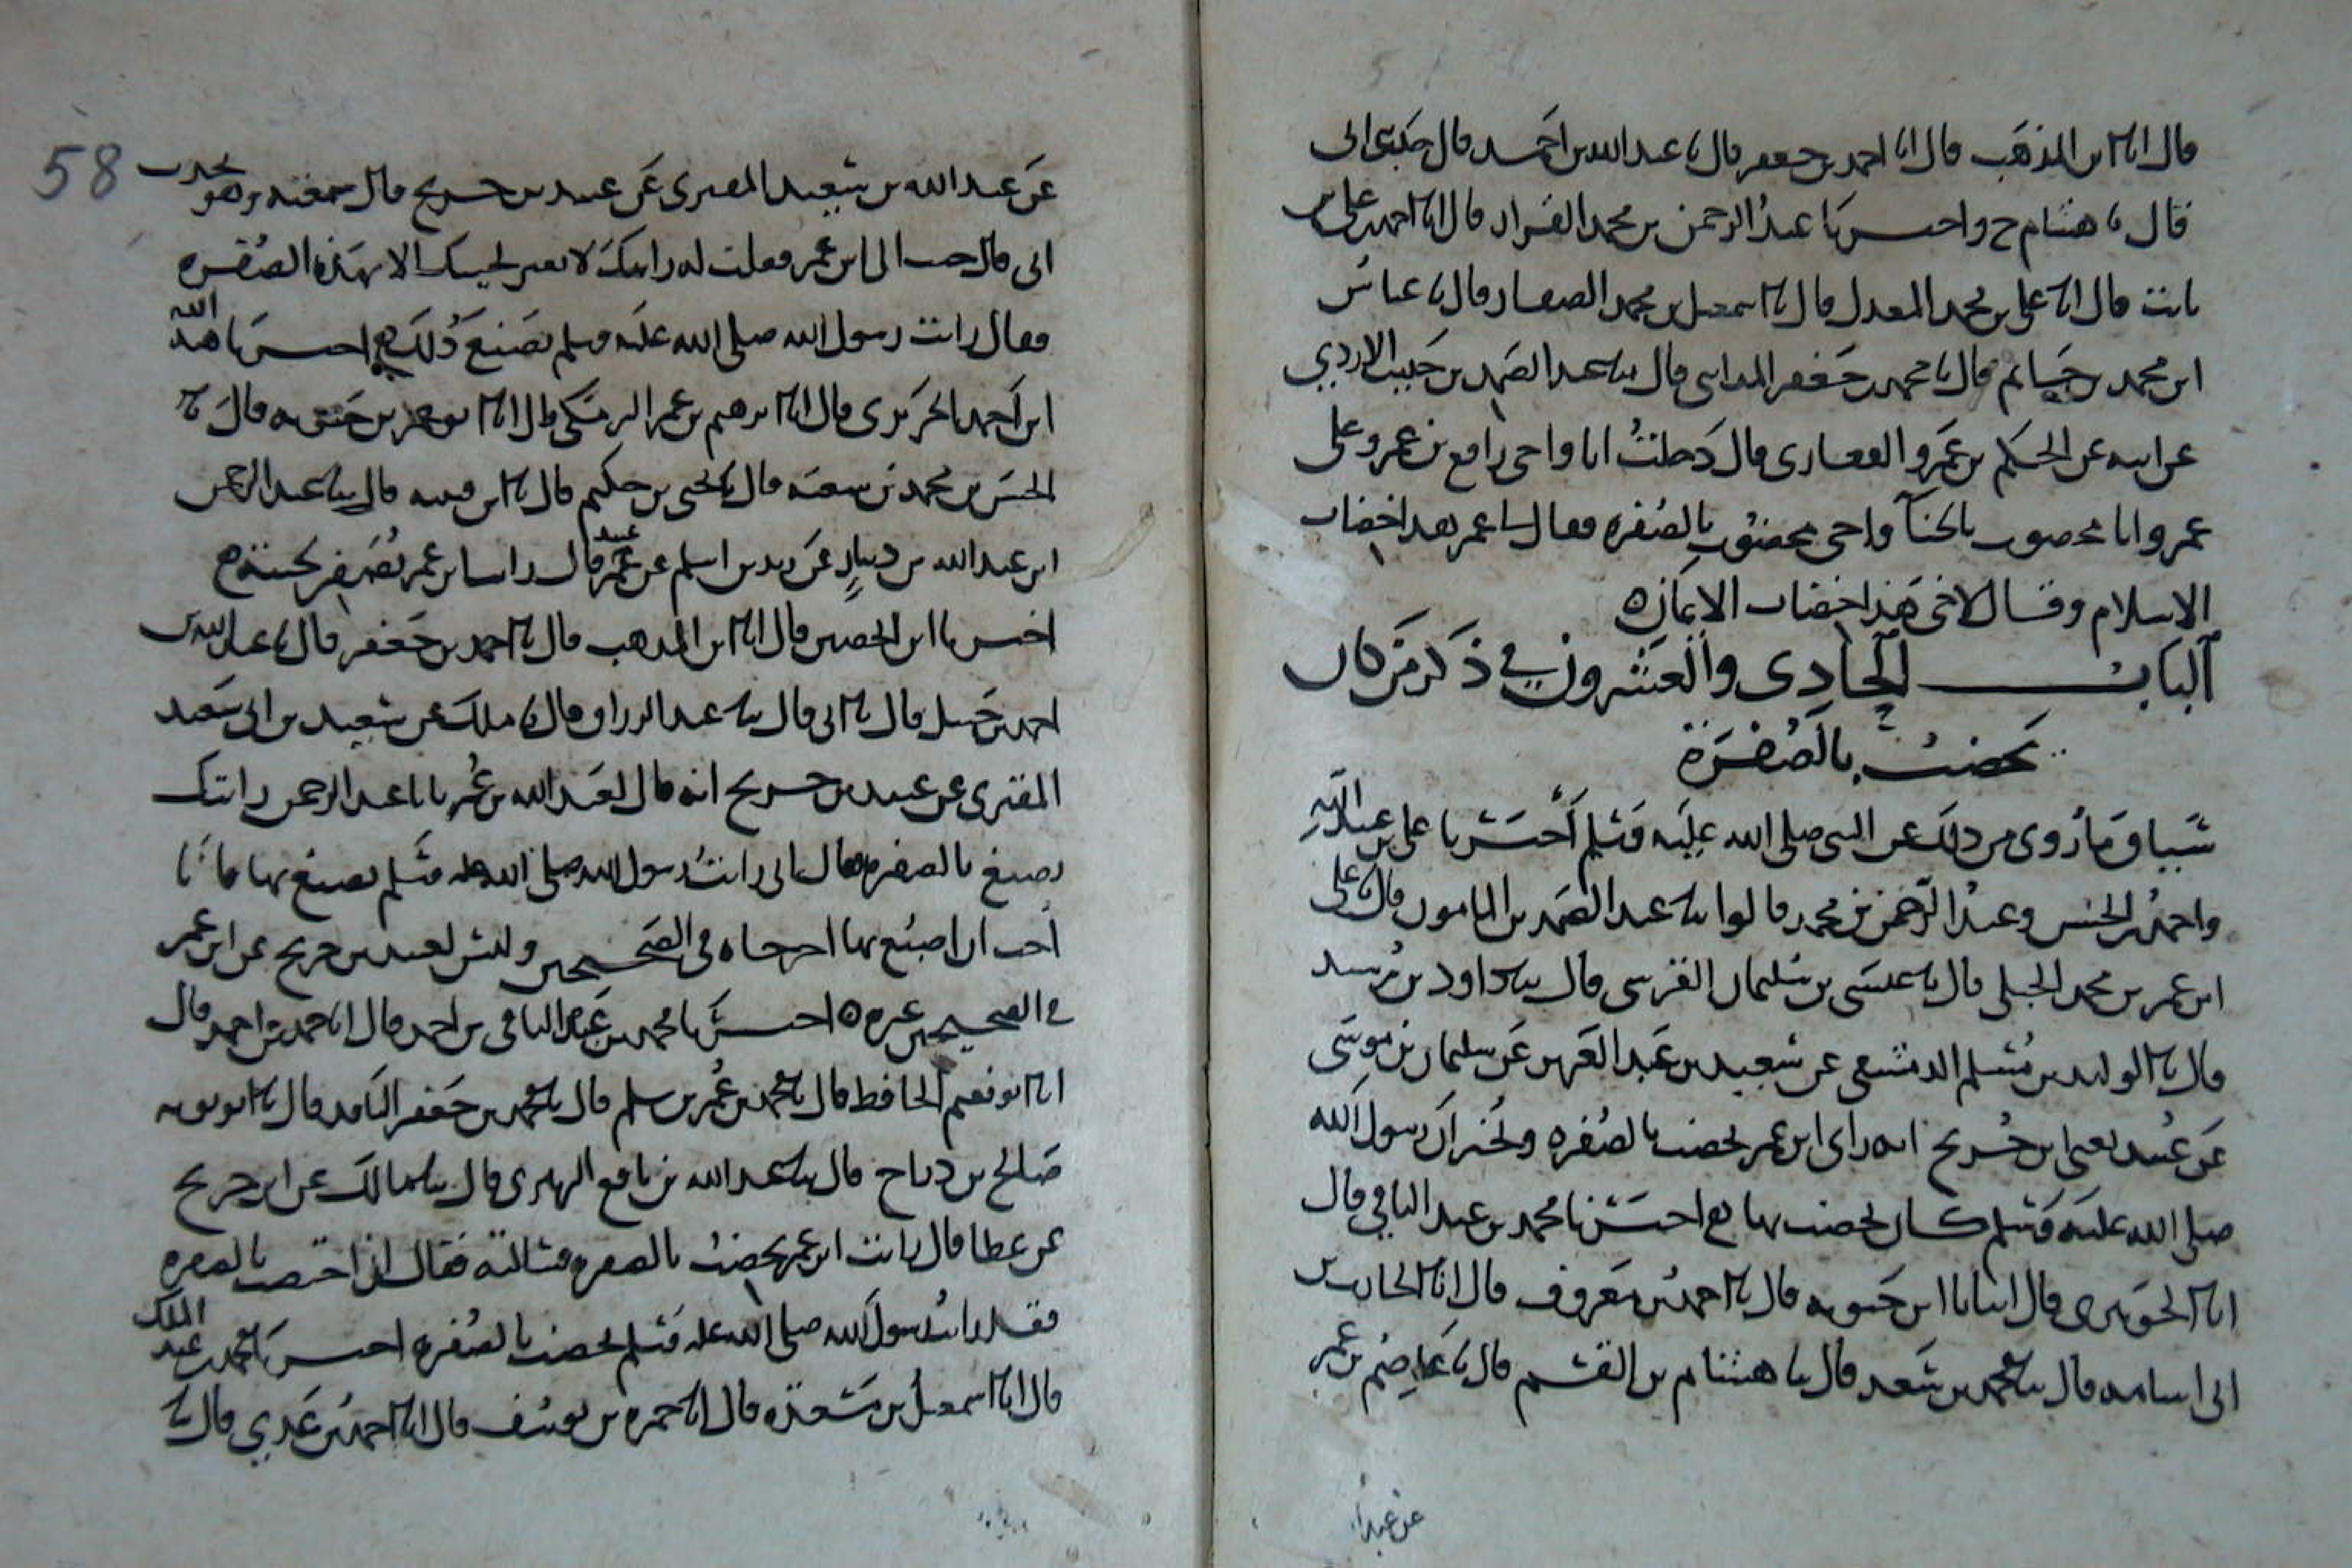 قال انا ابن المذهب قال انا احمد بن جعفر قال نا عبد الله بن احمد قال حدثنى ابى
قال نا هشام ح واخبرنا عبد الرحمن بن محمد القزاز قال انا احمد بن على بن
ثابت قال انا على بن محمد المعدل قال نا اسمعيل بن محمد الصفار قال نا عباس
ابن محمد بن حاتم قال نا محمد بن جعفر المداينى قال نا عبد الصمد بن حبيب الازدي
عن ابيه عن الحكم بن عمرو الغفارى قال دخلت انا واخى رافع بن عمرو على
عمر وانا مخضوب بالحنآ واخى مخضوب بالصفرة فقال لنا عمر هذا خضاب
الاسلام وقال لاخى هذا خضاب الايمان ه
الباب الحادى والعشرون في ذكر من كان
يخضب بالصفرة
سياق ما روى من ذلك عن النبى صلى الله عليه وسلم اخبرنا على بن عبيد الله
واحمد بن الحسن وعبد الرحمن بن محمد قالوا نا عبد الصمد بن المامون قال نا على
ابن عمر بن محمد الجبلى قال نا عيسى بن سليمان القرشى قال نا داود بن رشيد
قال نا الوليد بن مسلم الدمشقى عن سعيد بن عبد العزيز عن سليمان بن موسى
عن عبيد يعنى ابن جريج انه راى ابن عمر يخضب بالصفرة ويخبر ان رسول الله
صلى الله عليه وسلم كان يخضب بها اخبرنا محمد بن عبد الباقي قال
انا الجوهرى قال انبانا ابن حيويه قال نا احمد بن معروف قال انا الحارث بن
ابى اسامه قال نا محمد بن سعد قال نا هشام بن القسم قال نا عاصم بن عمر
عن عبد
58
عن عبد الله بن سعيد المقبرى عن عبيد بن جريج قال سمعته وهو يحدث
ابى قال جيت الى ابن عمر فقلت له رايتك لا تغير لحيتك الا بهذه الصفره
فقال رايت رسول الله صلى الله عليه وسلم يصنع ذلك اخبرنا هبة الله
ابن احمد الحريرى قال انا ابرهيم بن عمر البرمكى قال انا ابن بخيت قال نا
الحسن بن محمد بن شعبه قال نا يحيى بن حكيم قال نا ابن قتيبه قال نا عبد الرحمن
ابن عبد الله بن دينار عن زيد بن اسلم عن عبيد قال راينا ابن عمر يصفر لحيته
اخبرنا ابن الحصين قال انا ابن المذهب قال نا احمد بن جعفر قال نا عبد الله بن
احمد بن حنبل قال نا ابى قال نا عبد الرزاق قال نا ملك عن سعيد بن ابى سعيد
المقبرى عن عبيد بن جريج انه قال لعبد الله بن عمر يا ابا عبد الرحمن رايتك
تصبغ بالصفره قال انى رايت رسول الله صلى الله عليه وسلم يصبغ بها فانا
احب ان اصبغ بها اخرجاه فى الصحيحين وليس لعبيد بن جريج عن ابن عمر
فى الصحيحين غيره ه اخبرنا محمد بن عبد الباقى بن احمد قال انا حمد بن احمد قال
انا ابو نعيم الحافظ قال نا محمد بن عمر بن سلم قال نا محمد بن جعفر قال نا ابو
صالح بن دباح قال نا عبد الله بن نافع الزبيرى قال نا مالك عن ابن جريج
عن عطا قال رايت ابن عمر يخضب بالصفره فسالته فقال ان اختضب بالصفره
فقد رايت رسول الله صلى الله عليه وسلم يخضب بالصفره اخبرنا محمد بن عبد الملك
قال انا اسمعيل بن مسعدة قال انا حمزه بن يوسف قال انا احمد بن عدي قال نا